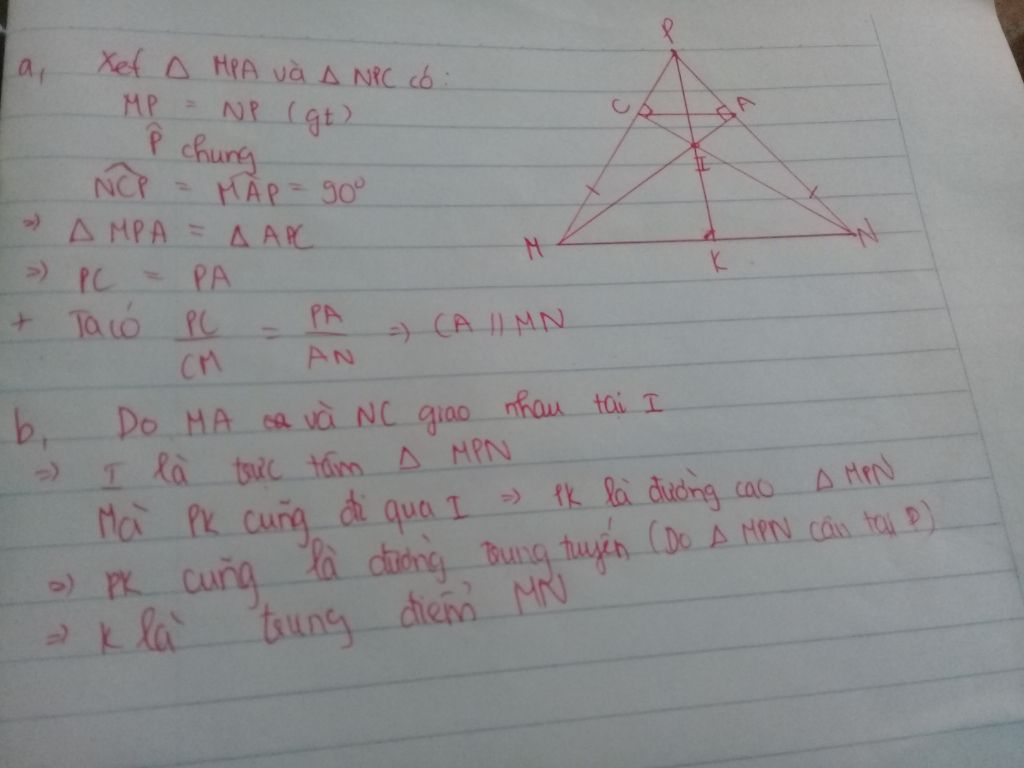 a, Xét △ MPA và △ NPC có:
MP = NP (gt)
P̂ chung
N̂CP = M̂AP = 90°
=> △ MPA = △ APC
=> PC = PA
+ Ta có PC/CM = PA/AN => CA // MN
b, Do MA và NC giao nhau tại I
=> I là trực tâm △ MPN
Mà PK cũng đi qua I => PK là đường cao △ MPN
=> PK cũng là đường trung tuyến (Do △ MPN cân tại P)
=> K là trung điểm MN
P
C
A
I
M
N
K